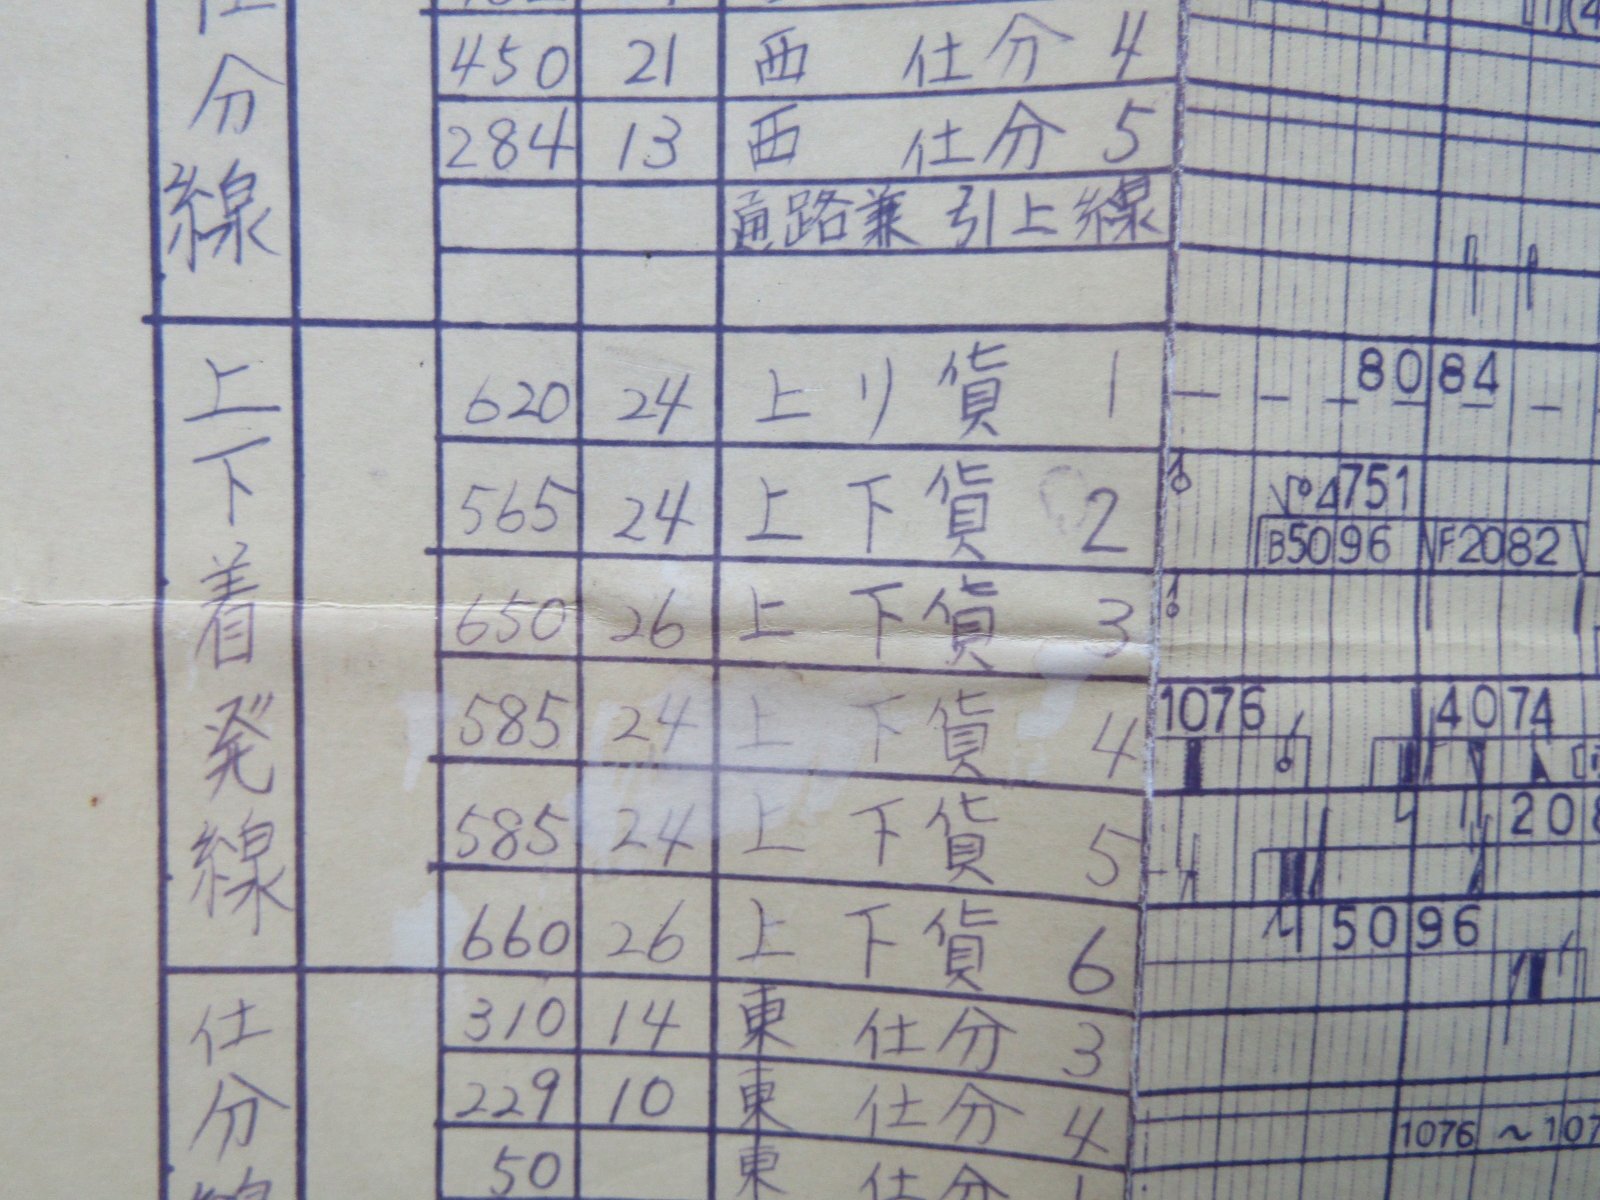 仕分線
450 21 西 仕分 4
284 13 西 仕分 5
通路兼 引上線
上下着発線
620 24 上り貨 1 8084
565 24 上下貨 2 4751
B5096 F2082
650 26 上下貨 3
585 24 上下貨 4 1076 4074
585 24 上下貨 5 208
660 26 上下貨 6 5096
仕分線
310 14 東 仕分 3
229 10 東 仕分 4 1076 ~ 107
50 東 仕分